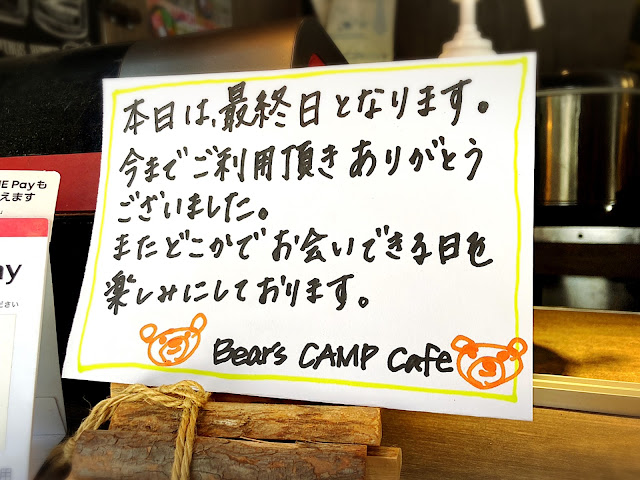 本日は、最終日となります。
今までご利用頂きありがとう
ございました。
またどこかでお会いできる日を
楽しみにしております。
Bear's CAMP Cafe
E Payも
えます
ay
ださい